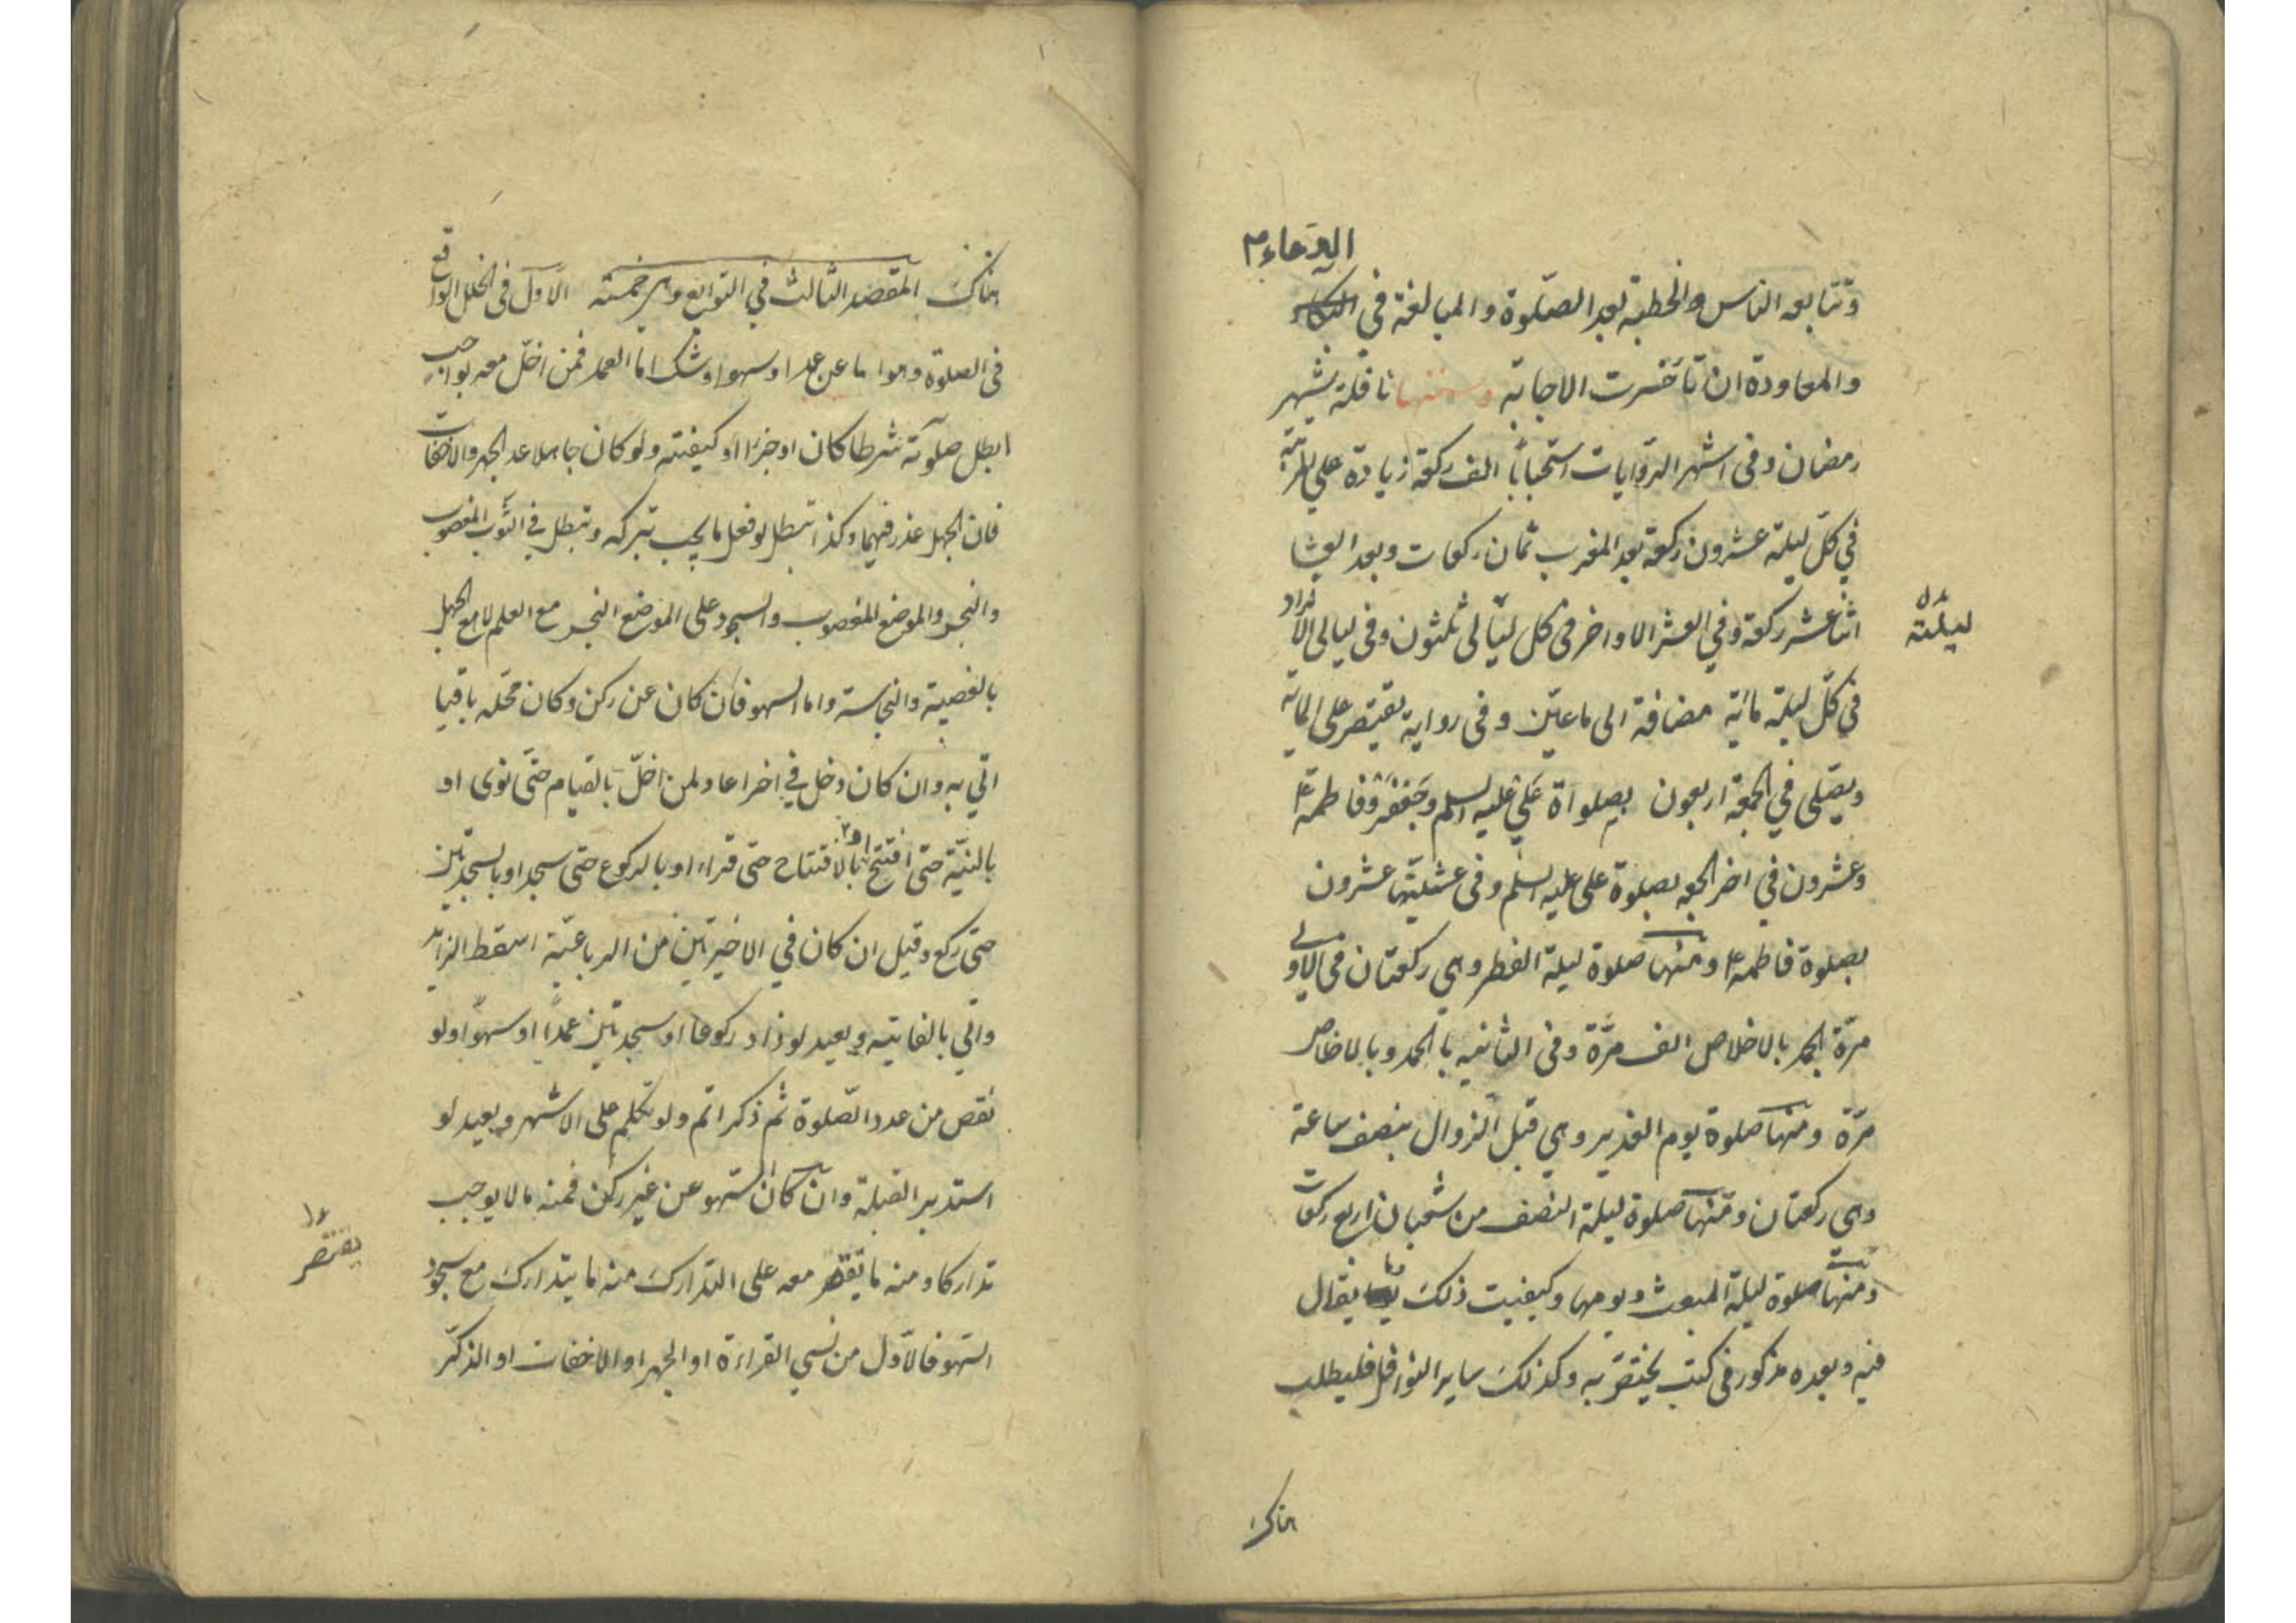 الدعاء
وتتابعه الناس والخطبة بعد الصلوة والمبالغة في
والمعاودة ان تأخرت الاجابة ومنها نافلة شهر
رمضان وفى اشهر الروايات استحبابا الف ركعة زيادة على المرتبة
في كل ليلة عشرون ركعة بعد المغرب ثمان ركعات وبعد العشا
اثنا عشر ركعة وفي العشر الاواخر فى كل ليالى ثلثون وفى ليالى الافراد
ليلة
في كل ليلة مائة مضافة الى ما عين وفى رواية يقتصر على المائة
ويصلى في الجمعة اربعون بصلواة على عليه السلم وجعفر وفاطمة ع
وعشرون في اخر الجمعه بصلوة على عليه السلم وفى عشيتها عشرون
بصلوة فاطمه ع ومنها صلوة ليلة الفطر وهي ركعتان فى الاولى
مرة الحمد بالاخلاص الف مرة وفى الثانيه بالحمد وبالاخلاص
مرة ومنها صلوة يوم الغدير وهي قبل الزوال بنصف ساعة
وهي ركعتان ومنها صلوة ليلة النصف من شعبان اربع ركعات
ومنها صلوة ليلة المبعث ويومها وكيفيت ذلك وما يقال
فيه وبعده مذكور فى كتب يختص به وكذلك ساير النوافل فليطلب
هناك
هناك المقصد الثالث في التوابع وهي خمسة الاول فى الخلل الواقع
فى الصلوة وهو اما عن عمد او سهو او شك اما العمد فمن اخل معه بواجب
ابطل صلوته شرطا كان او جزءا او كيفيته ولو كان جاهلا عد الجهر والاخفات
فان الجهل عذر فيهما وكذا تبطل لو فعل ما يجب تركه وتبطل في الثوب المغصوب
والنجس والموضع المغصوب والسجود على الموضع النجس مع العلم لا مع الجهل
بالغصبية والنجاسة واما السهو فان كان عن ركن وكان محله باقيا
اتي به وان كان دخل في اخر اعاد لمن اخل بالقيام حتى نوى او
بالنية حتى افتتح او بالافتتاح حتى قراء او بالركوع حتى سجد او بالسجدتين
حتى ركع وقيل ان كان في الاخيرتين من الرباعية اسقط الزايد
واتي بالفايته ويعيد لو زاد ركوعا او سجدتين عمدا او سهوا ولو
نقص من عدد الصلوة ثم ذكر اتم ولو تكلم على الاشهر ويعيد لو
استدبر القبلة وان كان السهو عن غير ركن فمنه ما لا يوجب
تداركا ومنه ما يقتصر معه على التدارك منه ما يتدارك مع سجود
يقتصر
السهو فالاول من نسي القراءة او الجهر او الاخفات او الذكر